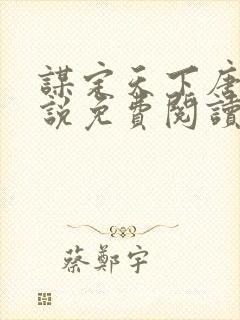 謀定天下唐
說免費閱讀
蔡鄭宇